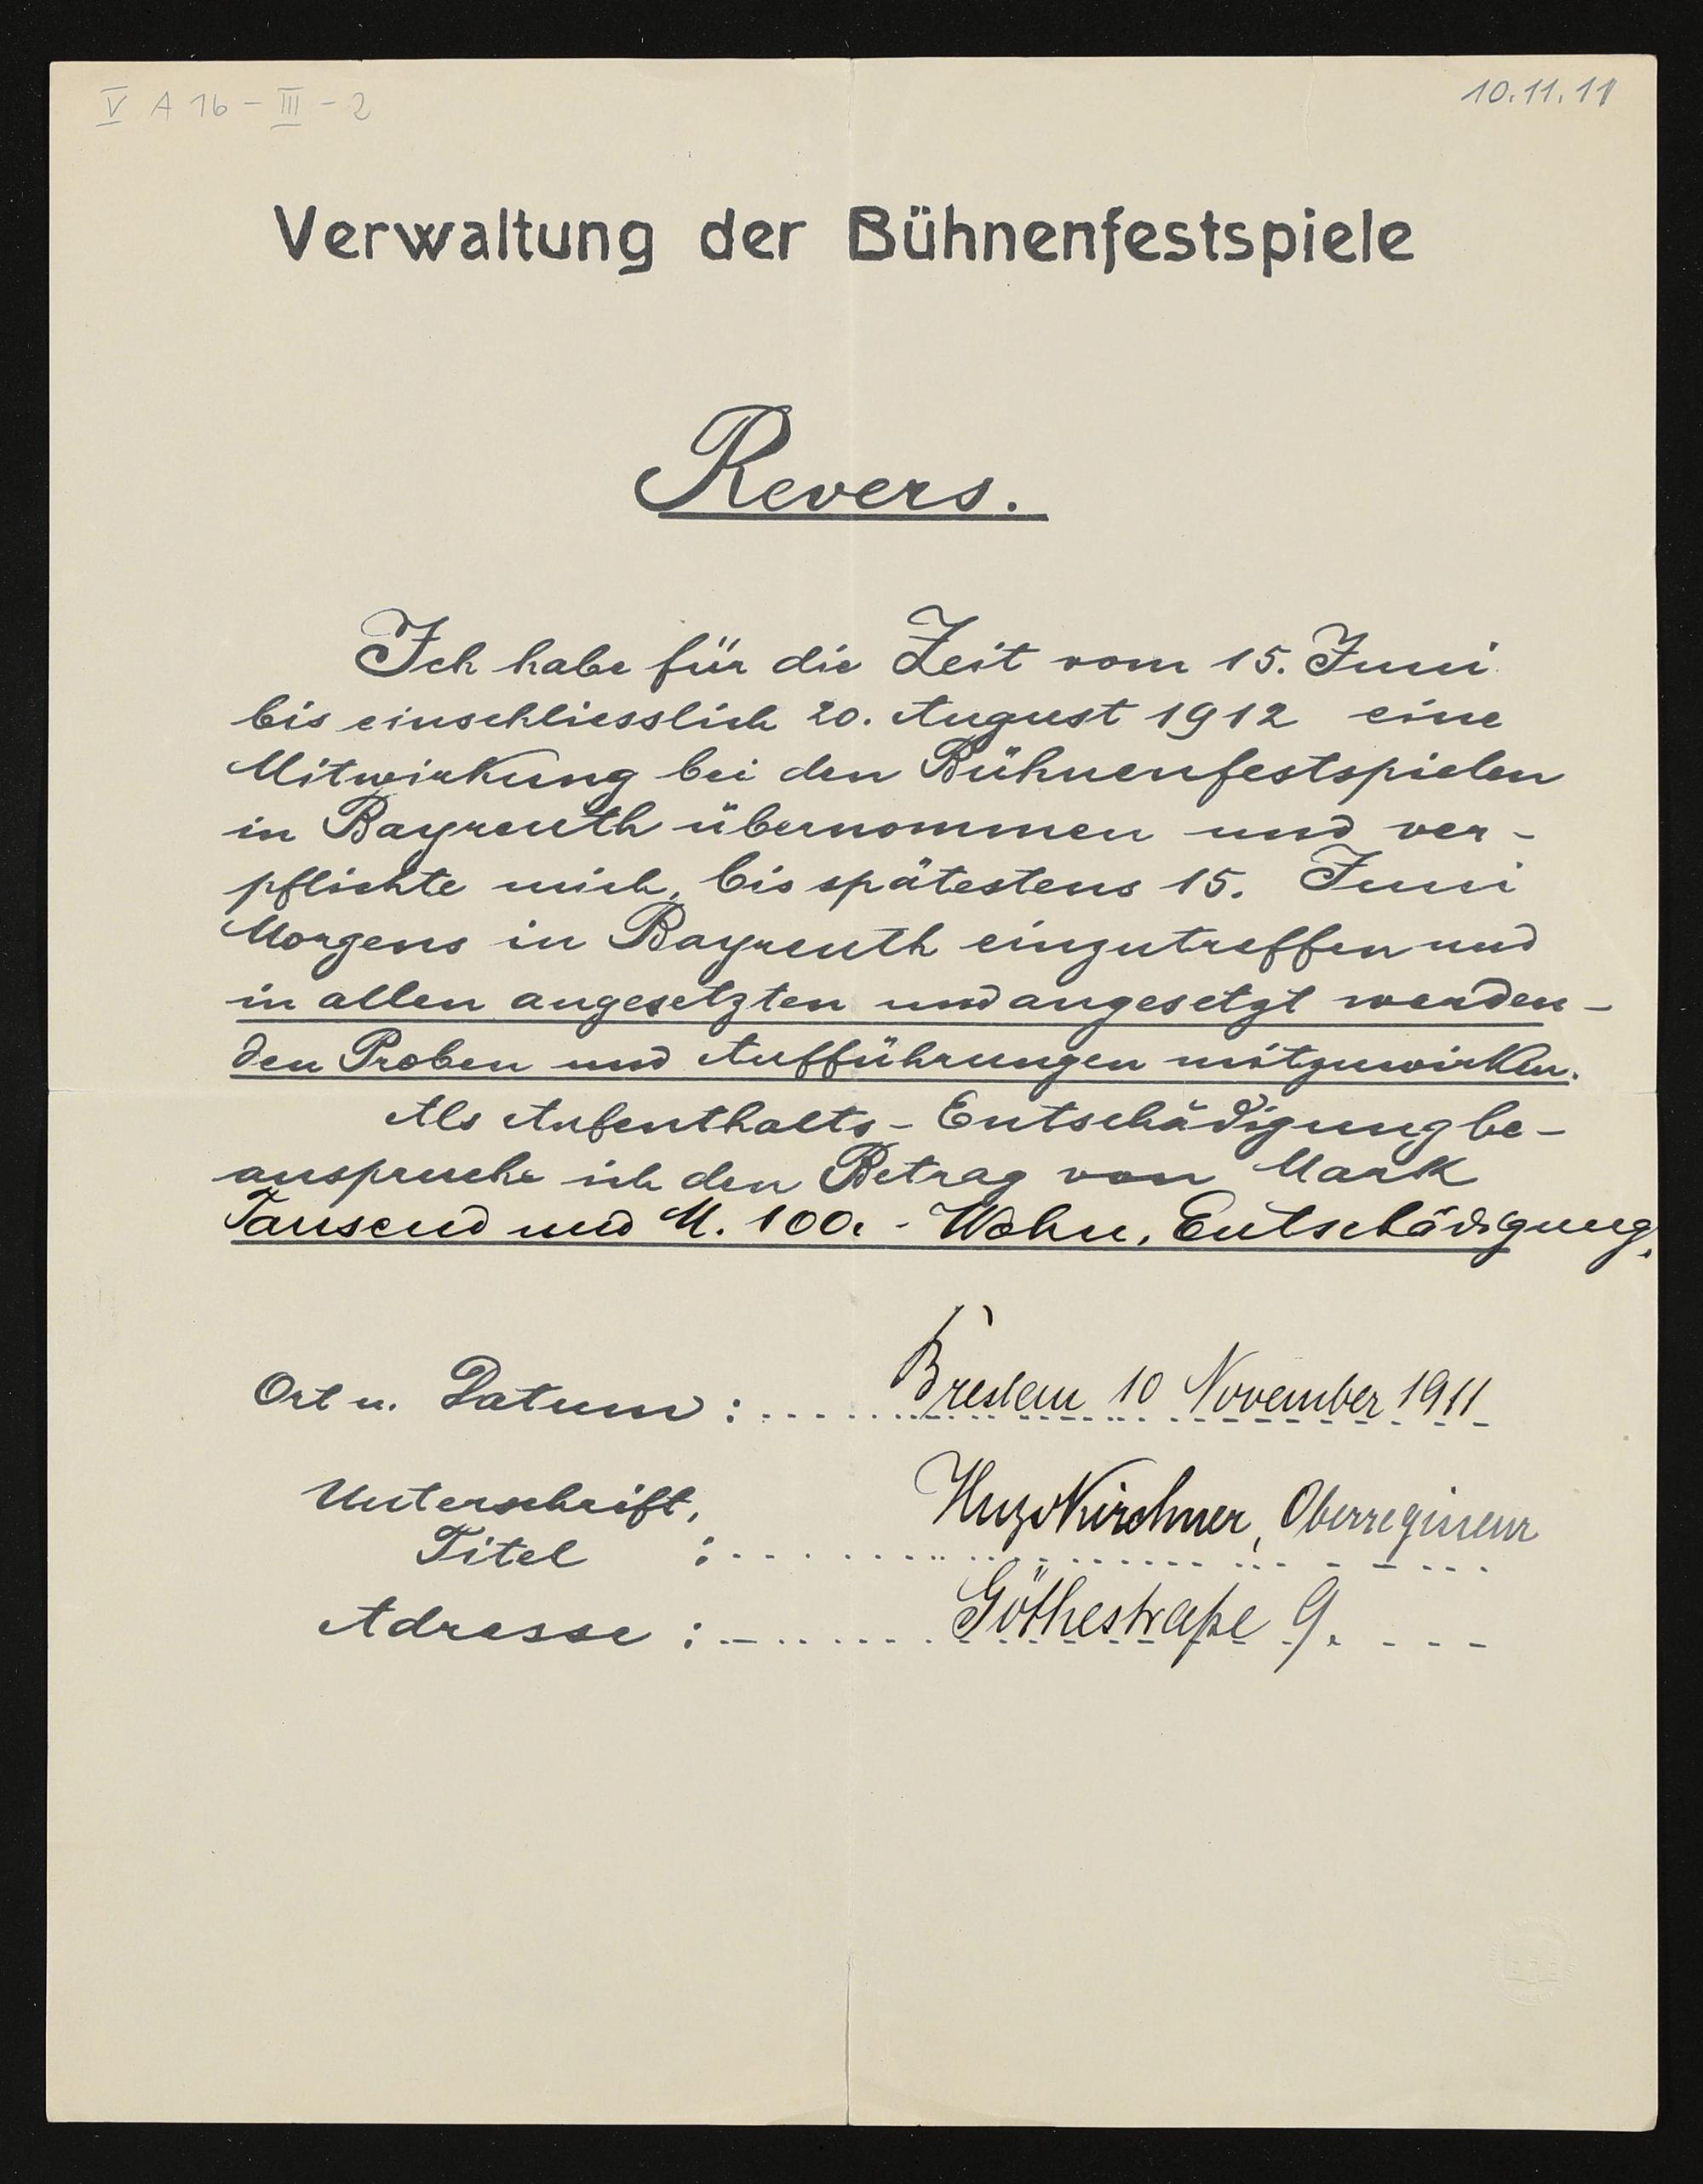 V A 16 - III - 2
10.11.11
Verwaltung der Bühnenfestspiele
Revers.
Ich habe für die Zeit vom 15. Juni
bis einschliesslich 20. August 1912 eine
Mitwirkung bei den Bühnenfestspielen
in Bayreuth übernommen und ver-
pflichte mich, bis spätestens 15. Juni
Morgens in Bayreuth einzutreffen und
in allen angesetzten und angesetzt werden-
den Proben und Aufführungen mitzuwirken.
Als Aufenthalts-Entschädigung be-
anspruche ich den Betrag von Mark
Tausend und M. 100.- Wohn. Entschädigung.
Ort u. Datum: Breslau 10 November 1911
Unterschrift, Hugo Kirchner, Oberregisseur
Titel :
Adresse : Göthestraße 9.